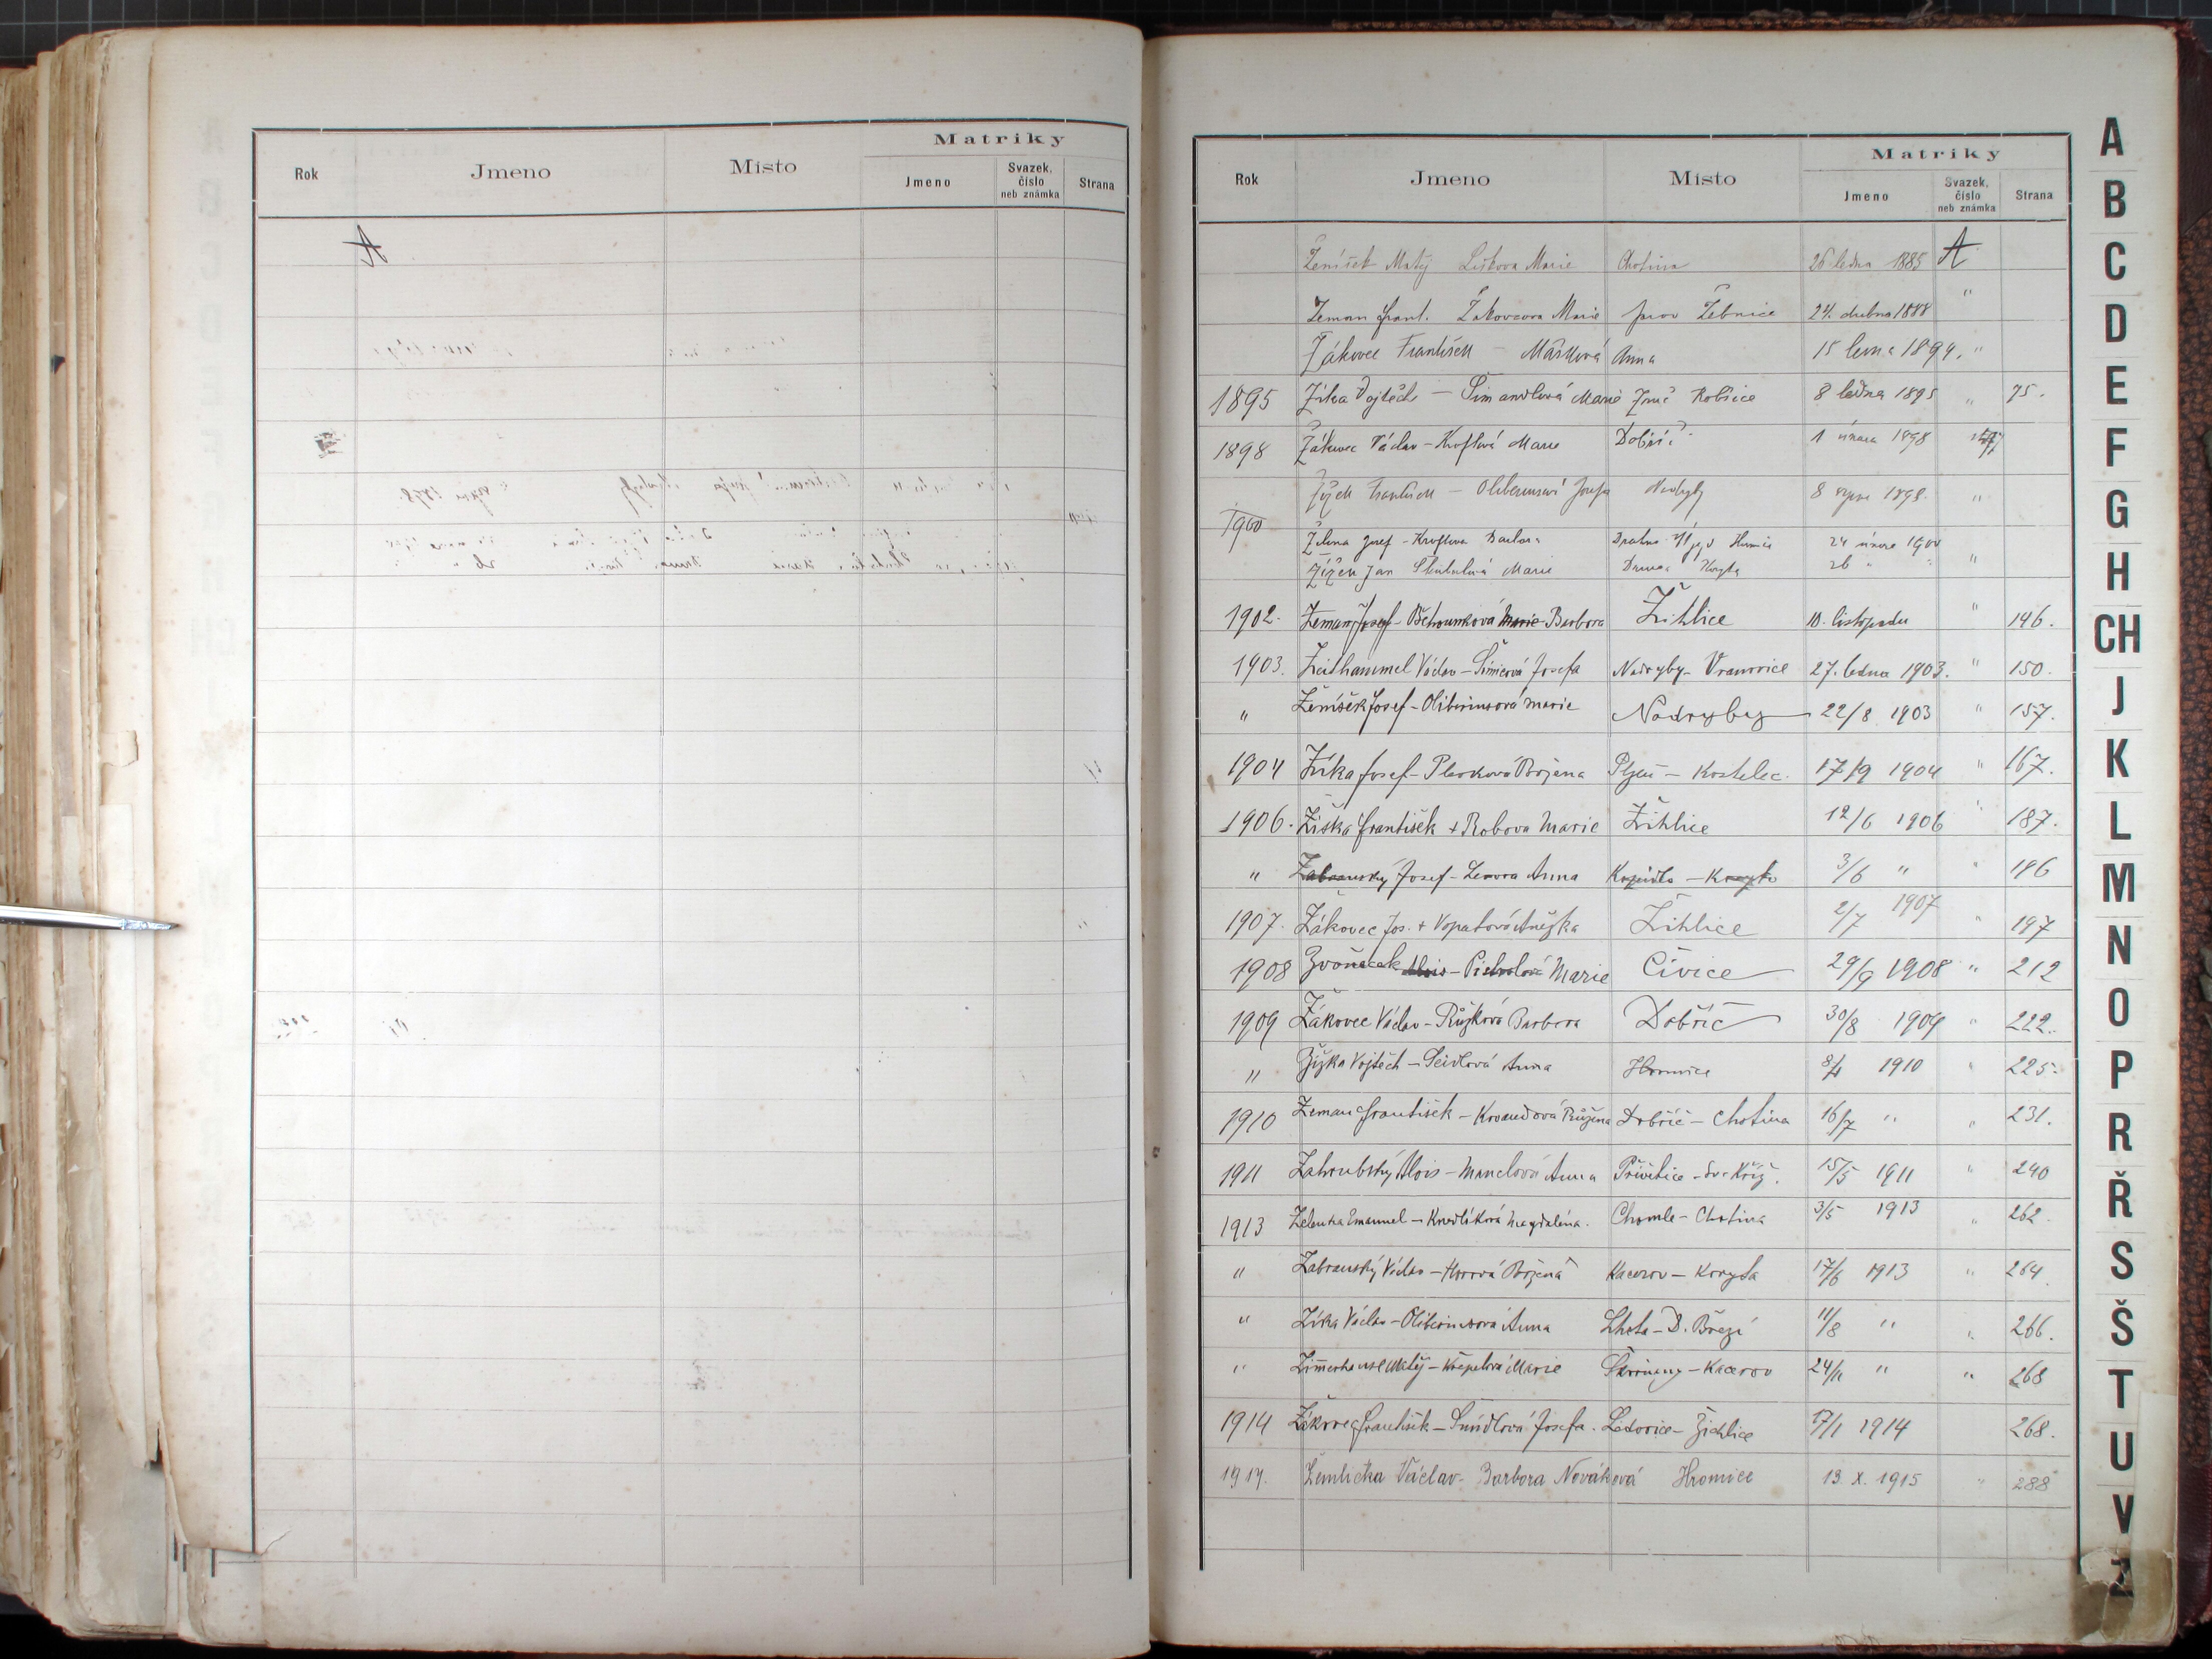 Matriky
Rok Jmeno Místo Jmeno Svazek, číslo neb známka Strana
A
Matriky
Rok Jmeno Místo Jmeno Svazek, číslo neb známka Strana
Ženíšek Matěj Liškova Marie Chotina 26 ledna 1885 A
Zeman Frant. Žákovcova Marie Žebnice 24. dubna 1888 "
Žákovec František - Mašková Anna 15 1894. "
1895 Zíka Vojtěch - Šimandlová Marie Kobšice 8 ledna 1895 " 75.
1898 Žákovec Václav - Kroftová Marie Dobříč 1 února 1898
František - Josefa Nadryby 8 1898 "
1900
Josef - Kroftova Barbora Hromice 24 února 1900
Jan Marie Koryta 26 " "
1902. Zeman Josef - Běhounková Marie Barbora Žihlice 10. listopadu " 146.
1903. Zeithammel Václav - Josefa Nadryby - Vranovice 27. ledna 1903. " 150.
" Ženíšek Josef - Oliberiusová Marie Nadryby 22/8 1903 " 157.
1904 Zíka Josef - Božena Plzeň - Kostelec. 17/9 1904 " 167.
1906. Žiška František + Robova Marie Žihlice 12/6 1906 " 187.
" Zabranský Josef - Anna - Koryto 3/6 " " 186
1907. Žákovec Jos. + Vopatová Anežka Žihlice 2/7 1907 " 197
1908 Zvoneček Alois - Marie Čivice 29/9 1908 " 212
1909 Žákovec Václav - Růžková Barbora Dobříč 30/8 1909 " 222.
" Žižka Vojtěch - Seidlová Anna Hromice 8/4 1910 " 225.
1910 Zeman František - Růžena Dobříč - Chotina 16/7 " " 231.
1911 Zahrubský Alois - Manclová Anna Přívětice - Sv. Kříž. 15/5 1911 " 240
1913 Zelenka Emanuel - Knedlíková Magdaléna. Chomle - Chotina 3/5 1913 " 262.
" Zabranský Václav - Horová Božena Kacerov - Koryta 17/6 1913 " 264.
" Zíka Václav - Oliberiusová Anna Lhota - D. Březí 11/8 " " 266.
" Matěj - Marie - Kacerov 24/11 " " 268
1914 Žákovec František - Josefa. Ledovice - Žichlice 17/1 1914 268.
1917. Žemlička Václav - Barbora Nováková Hromice 13. X. 1915 " 288
A
B
C
D
E
F
G
H
CH
J
K
L
M
N
O
P
R
Ř
S
Š
T
U
V
Z